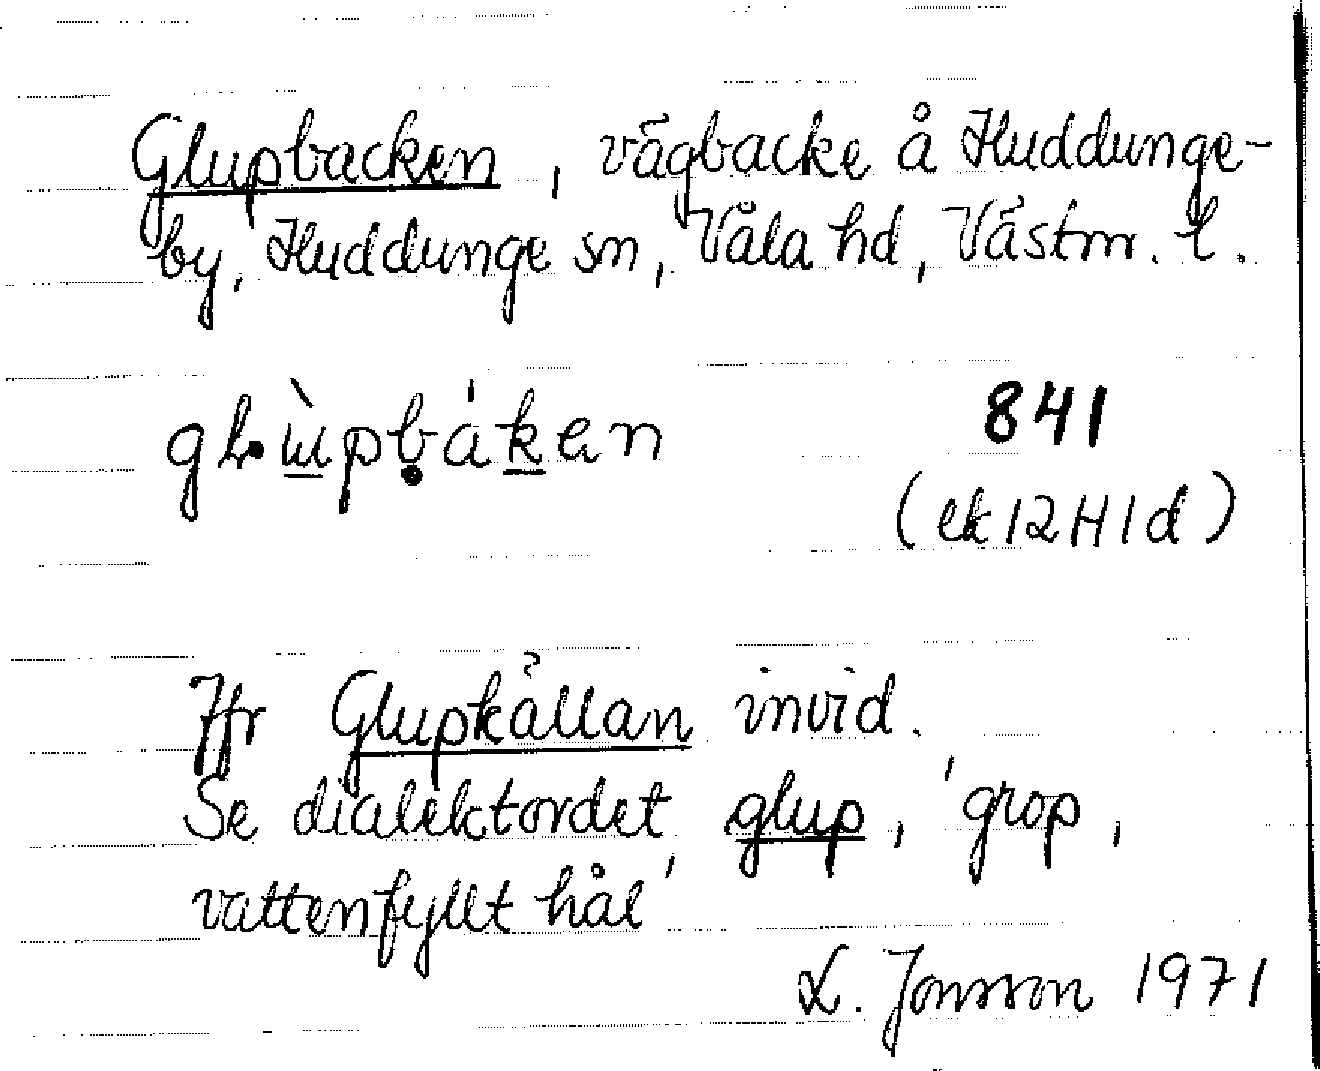 Glupbacken, vägbacke å Huddunge-
by, Huddunge sn, Våla hd, Västm. l.
841
(ek 12H1d)
Jfr Glupkällan invid.
Se dialektordet glup, 'grop,
vattenfyllt hål'
L. Jonsson 1971